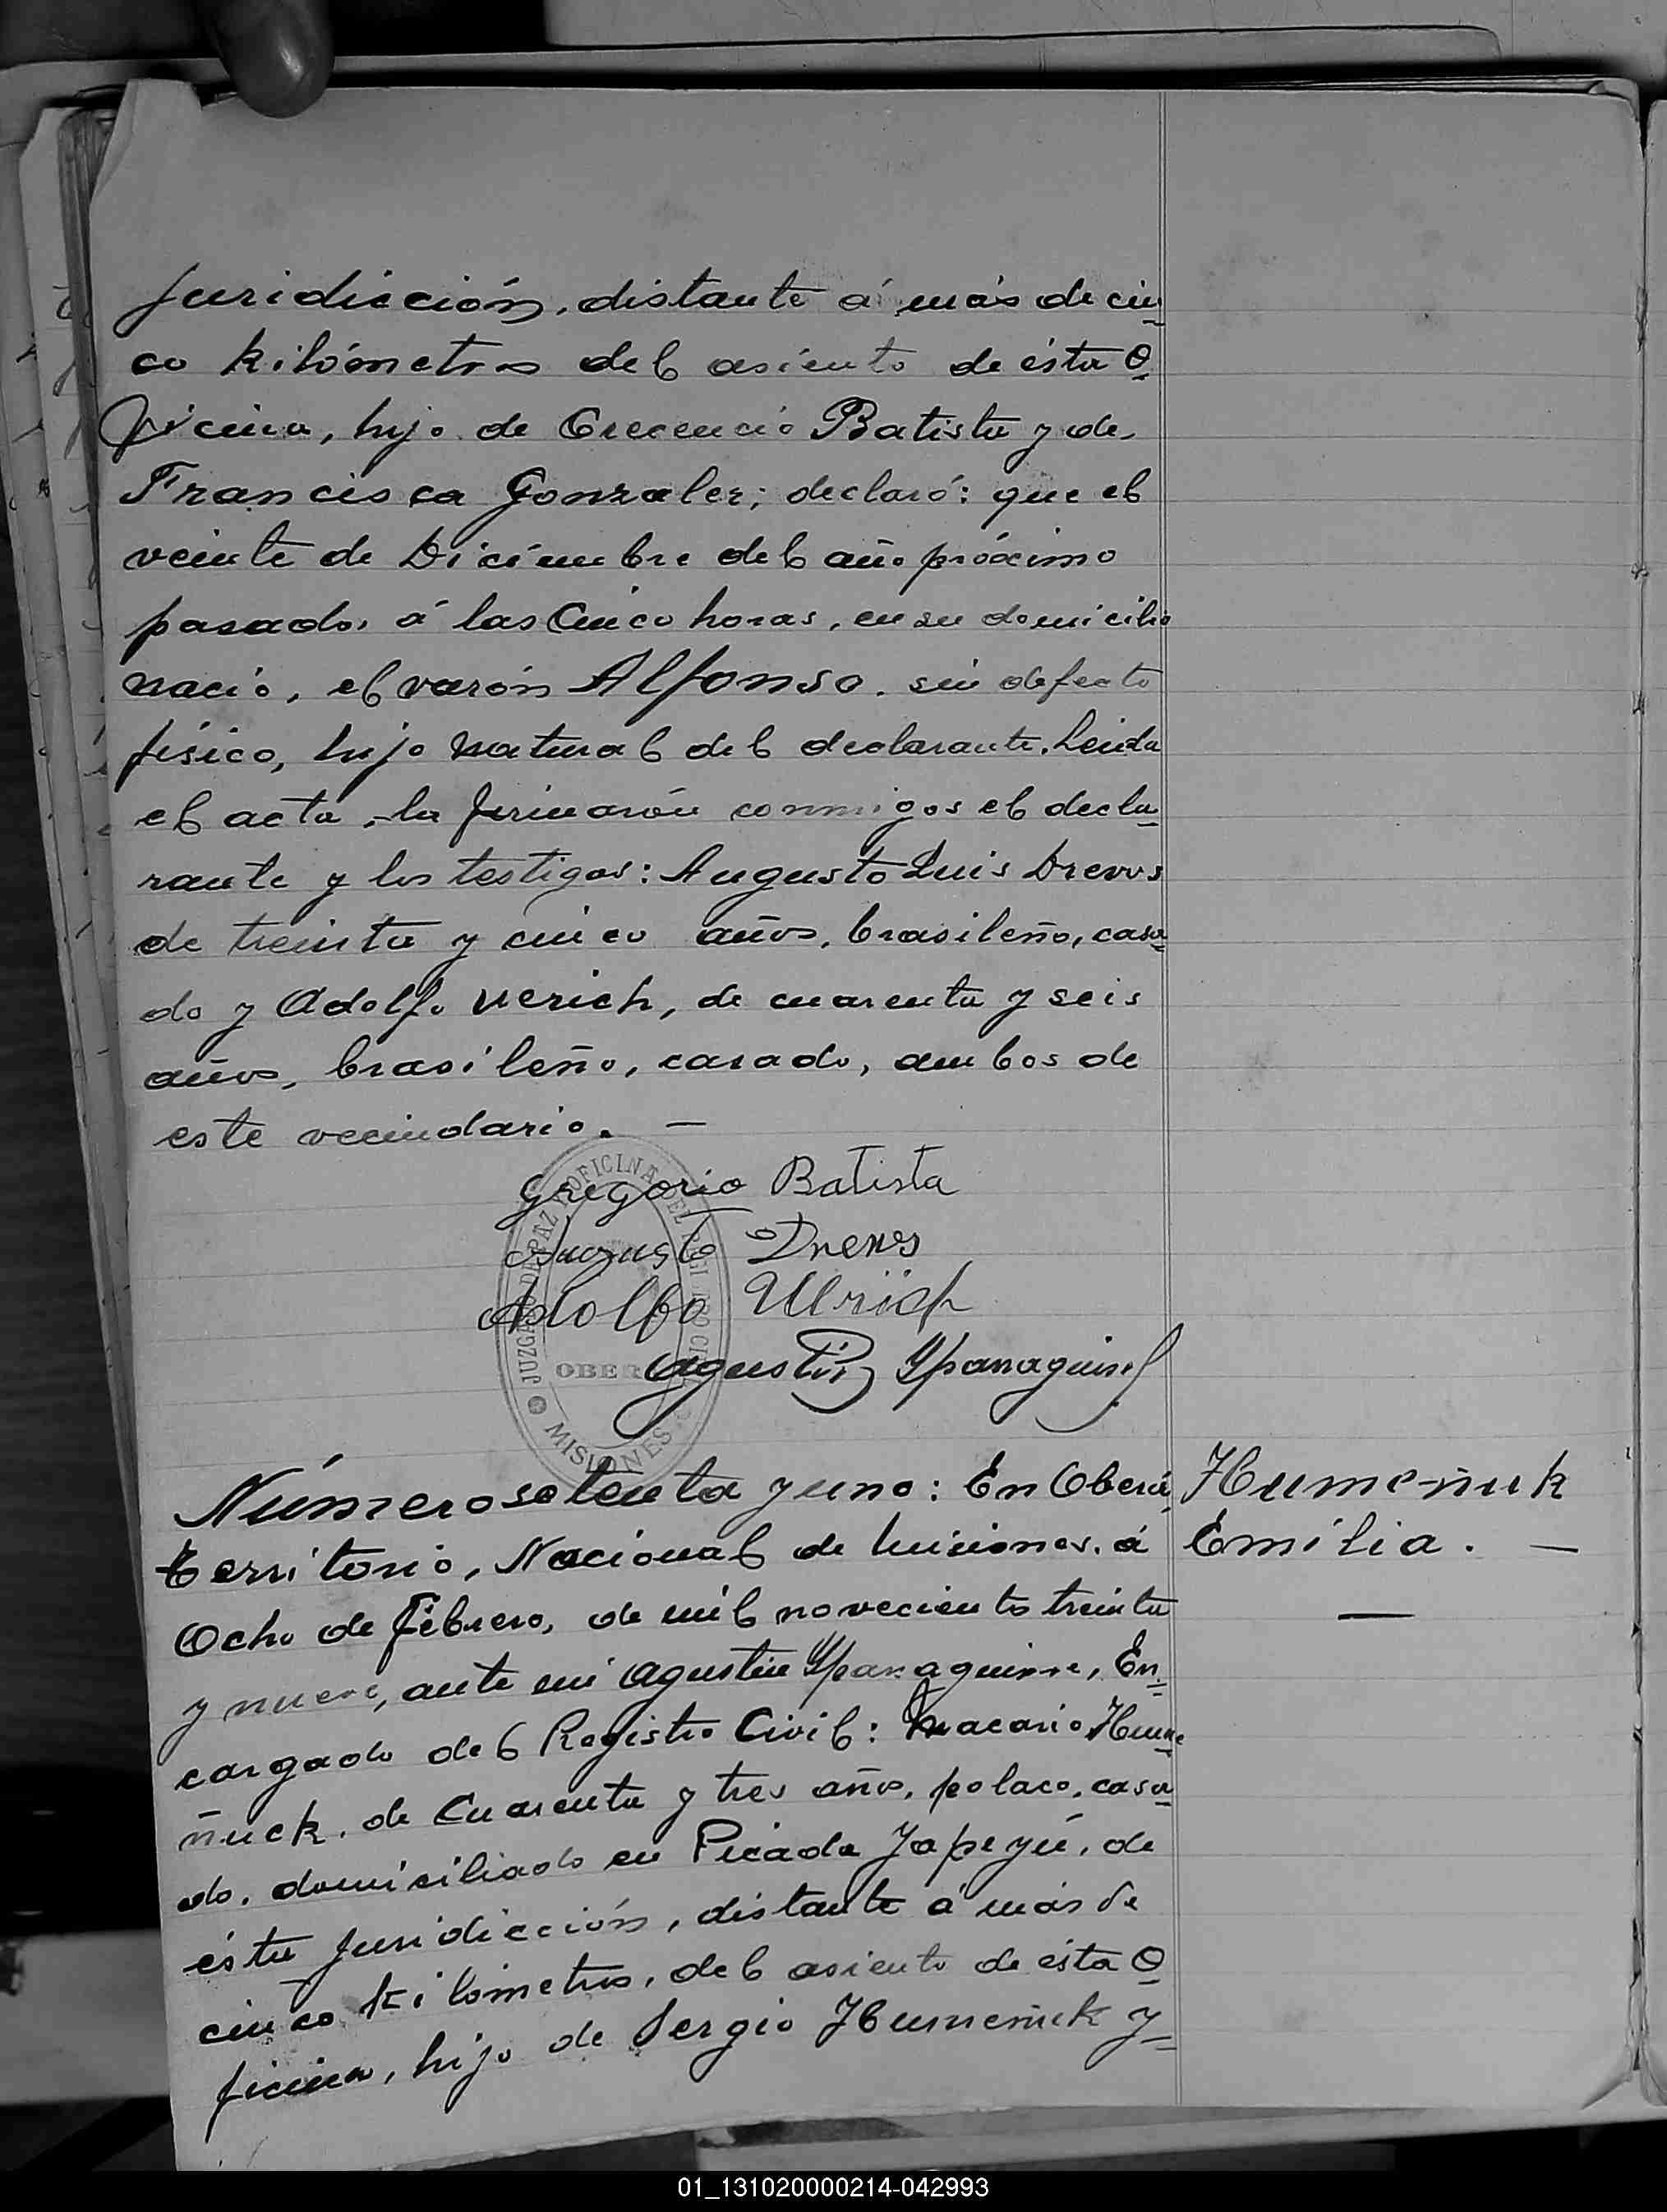 Juridicción, distante á más de cin
co kilómetros del asiento de ésta O
ficina, hijo de Crecencio Batista y de
Francisca Gonzalez; declaró: que el
veinte de Diciémbre del año próximo
pasado, á las Cinco horas, en su domicilio
nació, el varón Alfonso, sin defecto
físico, hijo natural del declarante. Leida
el acta, la firmarón conmigos el decla
rante y los testigos: Augusto Luis Drevvs
de treinta y cinco años, brasileño, casa
do y Adolfo Uerich, de cuarenta y seis
años, brasileño, casado, ambos de
este vecindario. —
Gregorio Batista
Augusto Drews
Adolfo Ulrich
Agustín Yparaguirre
JUZGADO DE PAZ OFICINA DEL REGISTRO CIVIL
OBERÁ
MISIONES
Número setenta y uno: En Oberá,
Territorio, Nacional de Misiones, á
Ocho de Fébrero, de mil noveciento treinta
y nueve, ante mi Agustín Yparaguirre, En
cargado del Registro Civil: Macario Hume
ñuck, de Cuarenta y tres años, polaco, casa
do, domiciliado en Picada Yapeyú, de
ésta Juridicción, distante á más de
cinco kilómetros, del asiento de ésta O
ficina, hijo de Sergio Humeñuk y
Humeñuk
Emilia. —
—
01_131020000214-042993